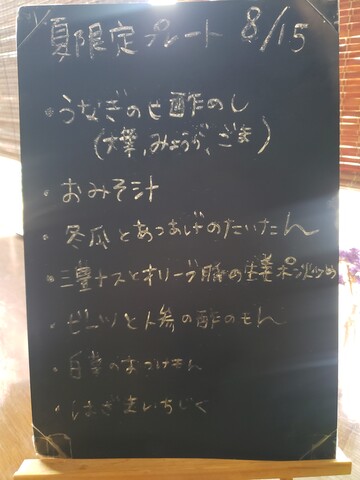 夏限定プレート 8/15
・うなぎのヒ酢のし
(大葉,みょうが,ごま)
・おみそ汁
・冬瓜とあつあげのたいたん
・三豊ナスとオリーブ豚の生姜ポン炒め
・ビーツと人参の酢のもん
・自家のおつけもん
・はざまいちじく